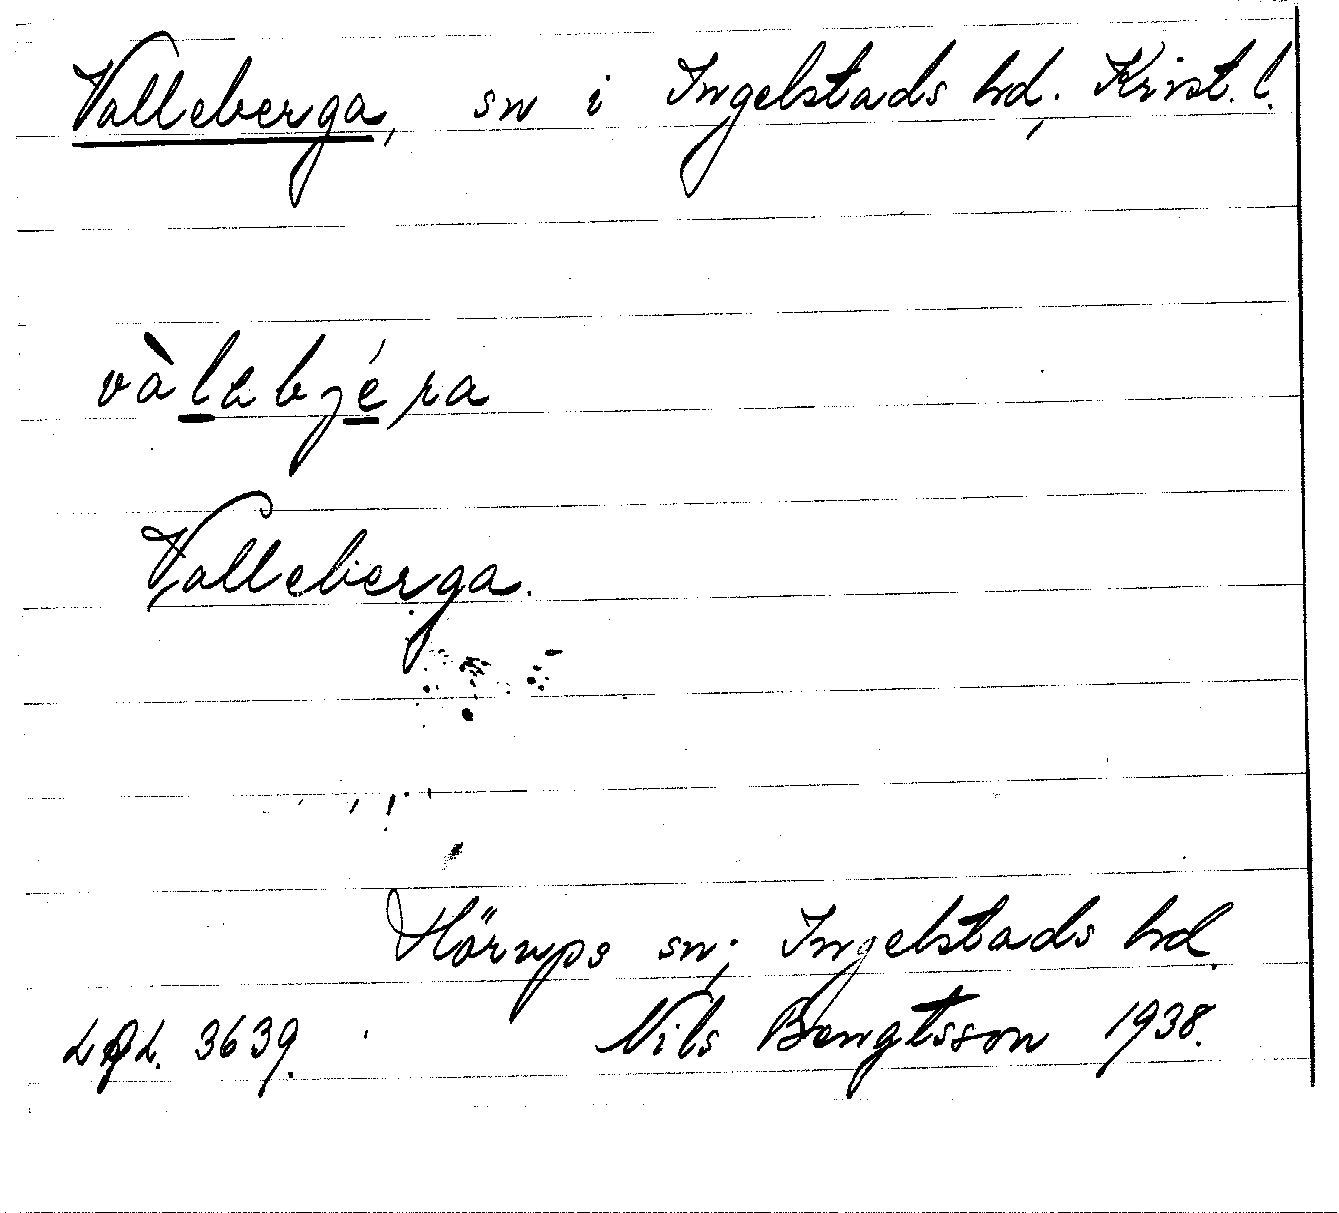 Valleberga, sn i Ingelstads hd, Krist. l.
vàlabjéra
Valleberga.
Hörups sn; Ingelstads hd.
3639. Nils Bengtsson 1938.